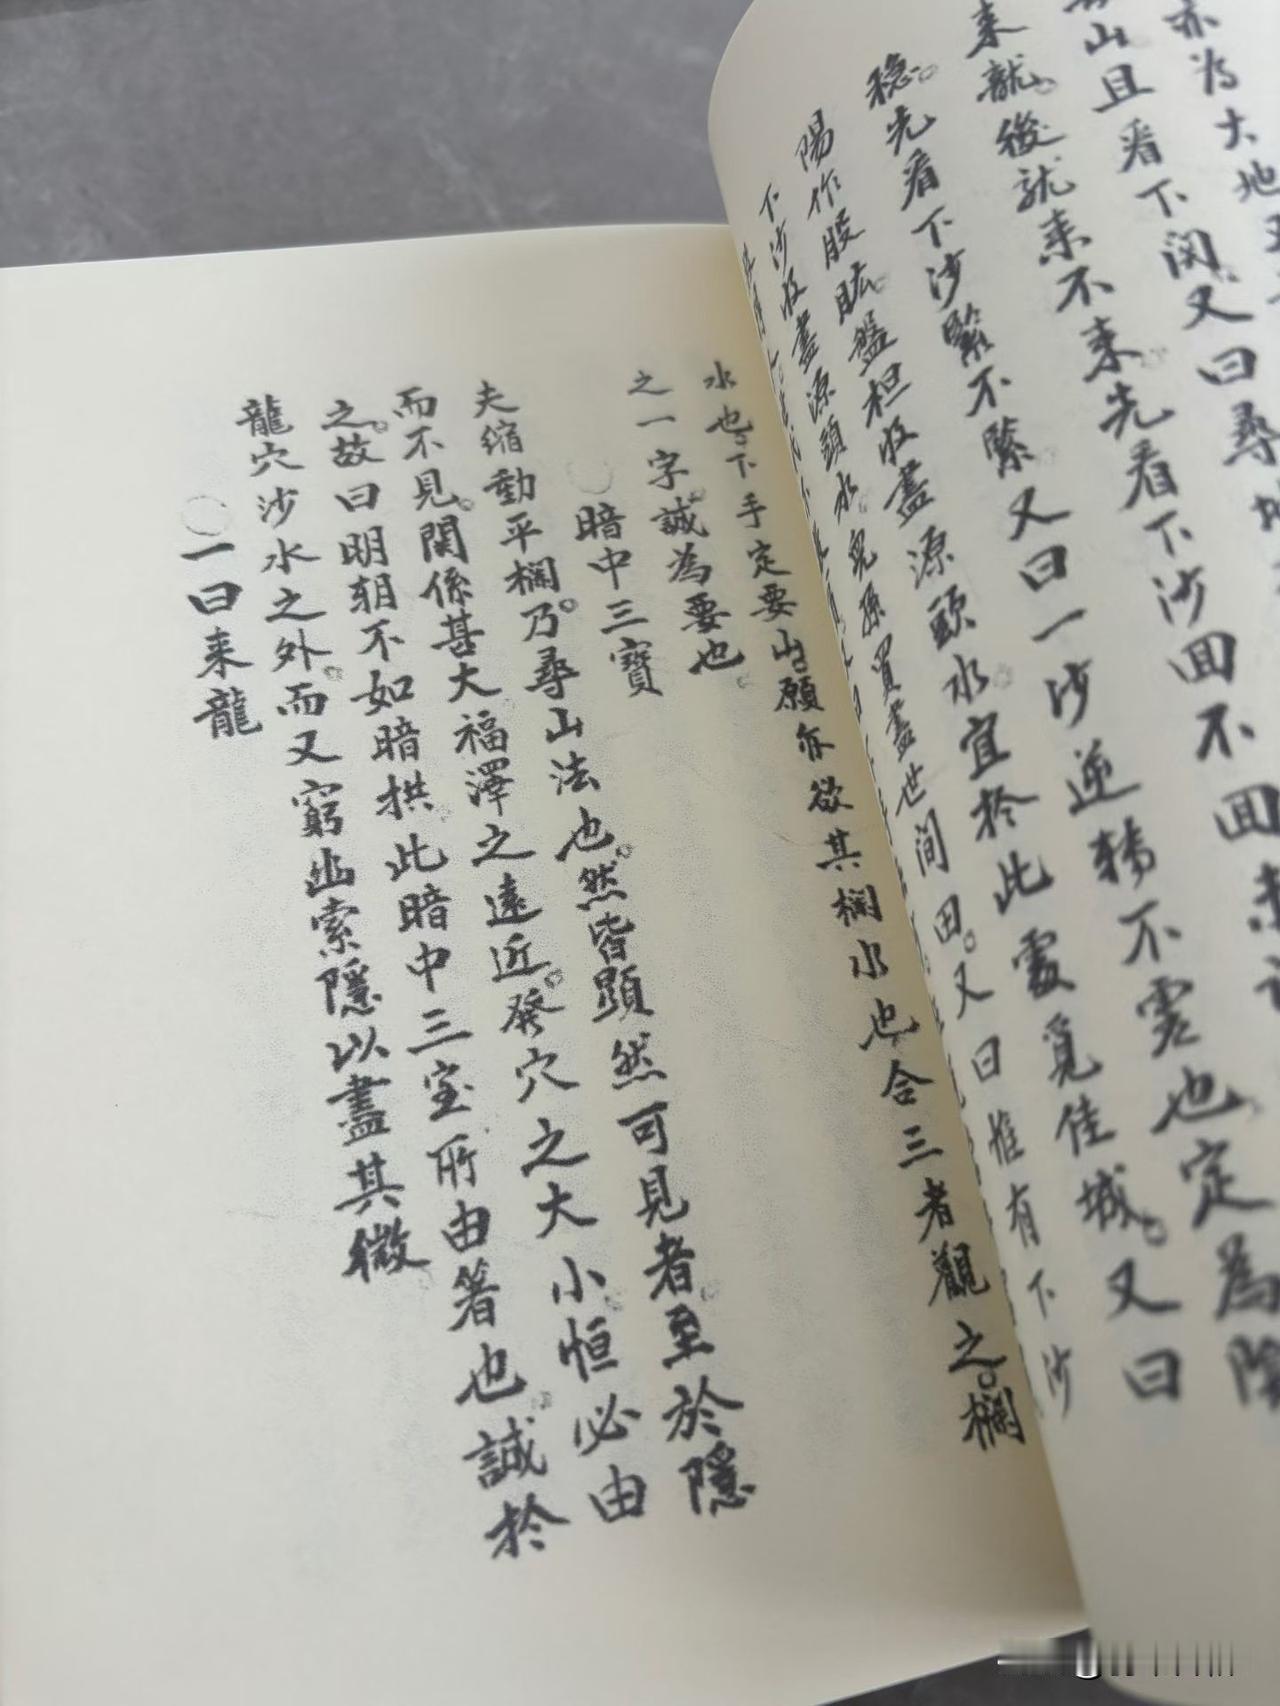 亦為大地又
山且看下関又曰尋地
来龍後就来不来先看下沙回不回
穏先看下沙緊不緊又曰一沙逆轉不害也定為陰
陽作股肱盤柤收盡源頭水宜於此處覓佳城又曰
下沙收盡源頭水兒孫買盡世间田又曰惟有下沙
水也下手定要山願亦欲其欄水也合三者觀之欄
之一字誠為要也
〇暗中三寶
夫缩動平欄乃尋山法也然皆顕然可見者至於隱
而不見関係甚大福澤之遠近發穴之大小恒必由
之故曰明朝不如暗拱此暗中三宝所由着也誠於
龍穴沙水之外而又窮幽索隱以盡其微
〇一曰来龍